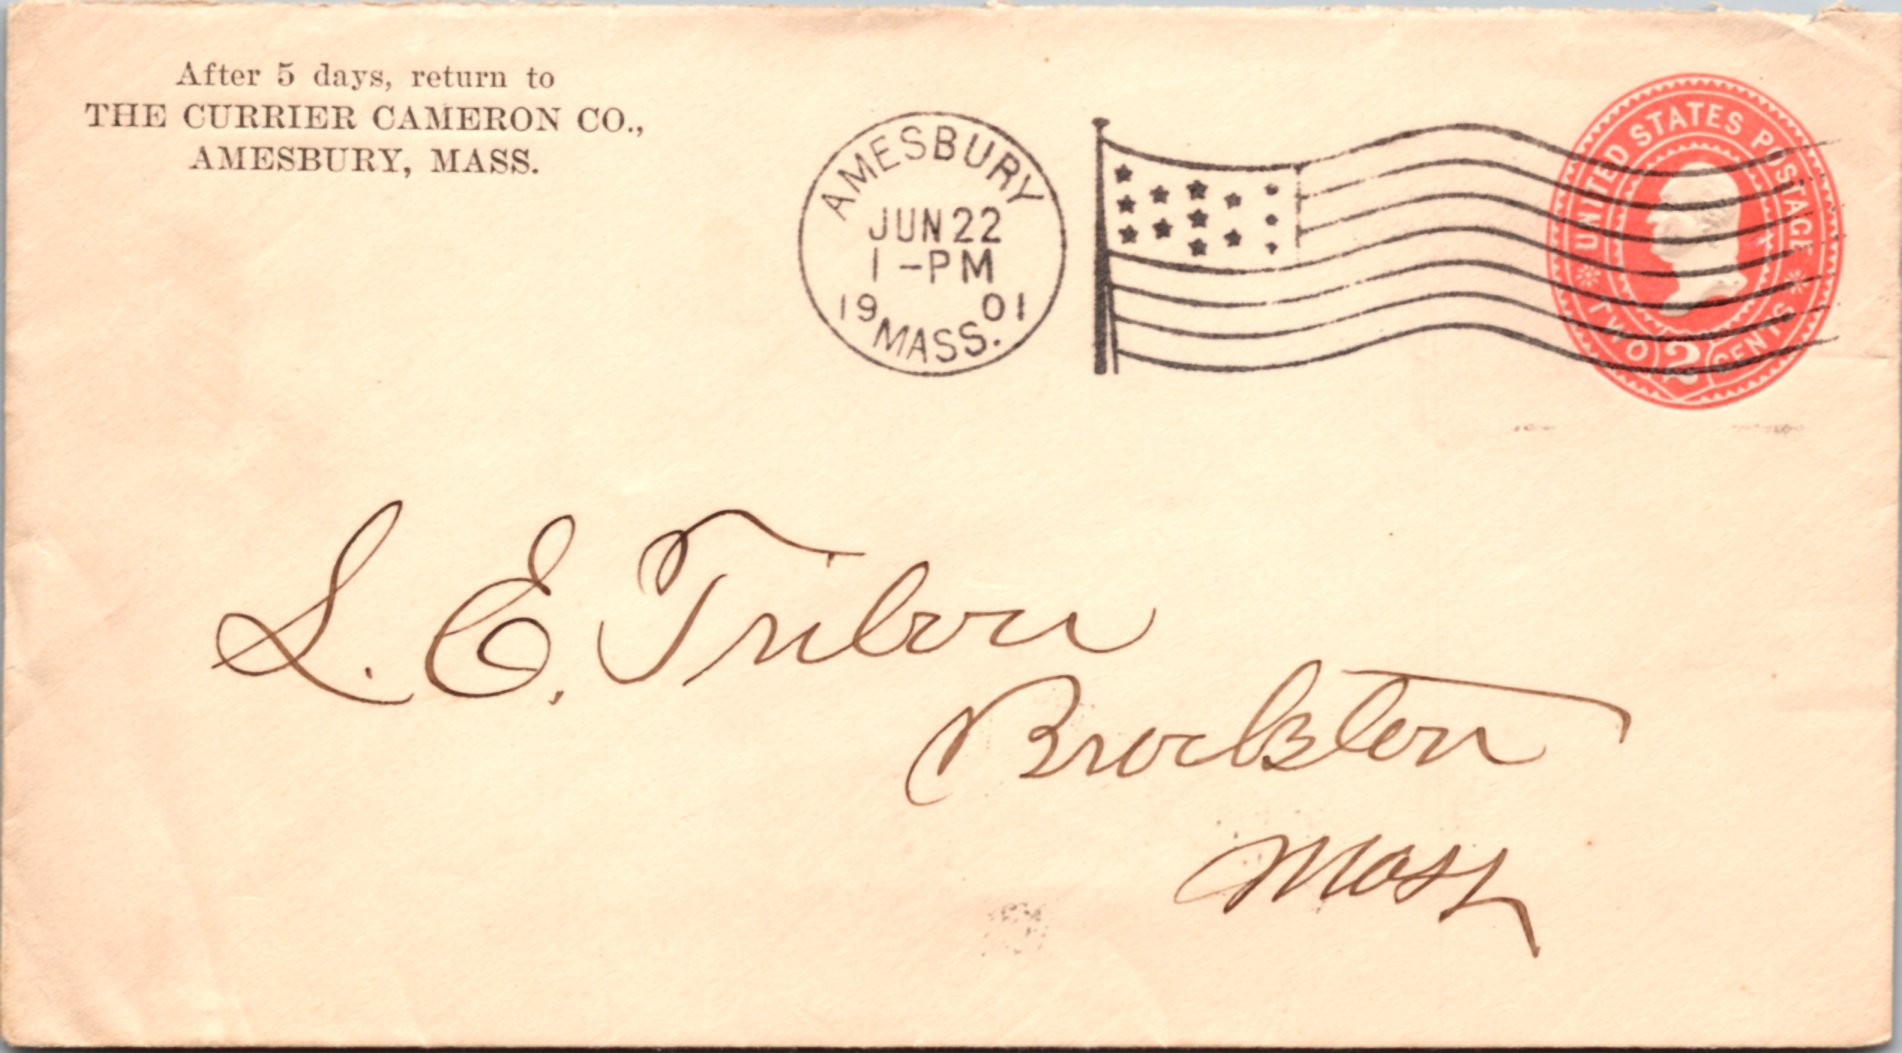 After 5 days, return to
THE CURRIER CAMERON CO.,
AMESBURY, MASS.
AMESBURY
JUN 22
1-PM
19 01
MASS.
UNITED STATES POSTAGE
TWO 2 CENTS
L. E. Tribou
Brockton
Mass